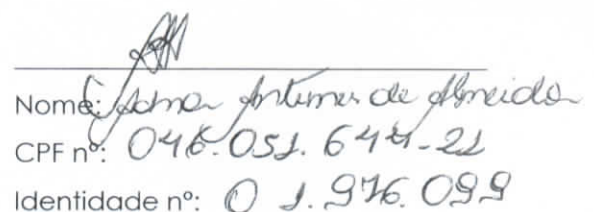 Nome: Antunes de Almeida
CPF nº: 046.051.644-21
Identidade nº: 0 1.976.099